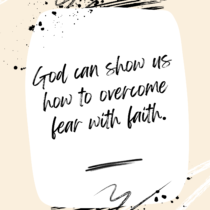 God can show us
how to overcome
fear with faith.